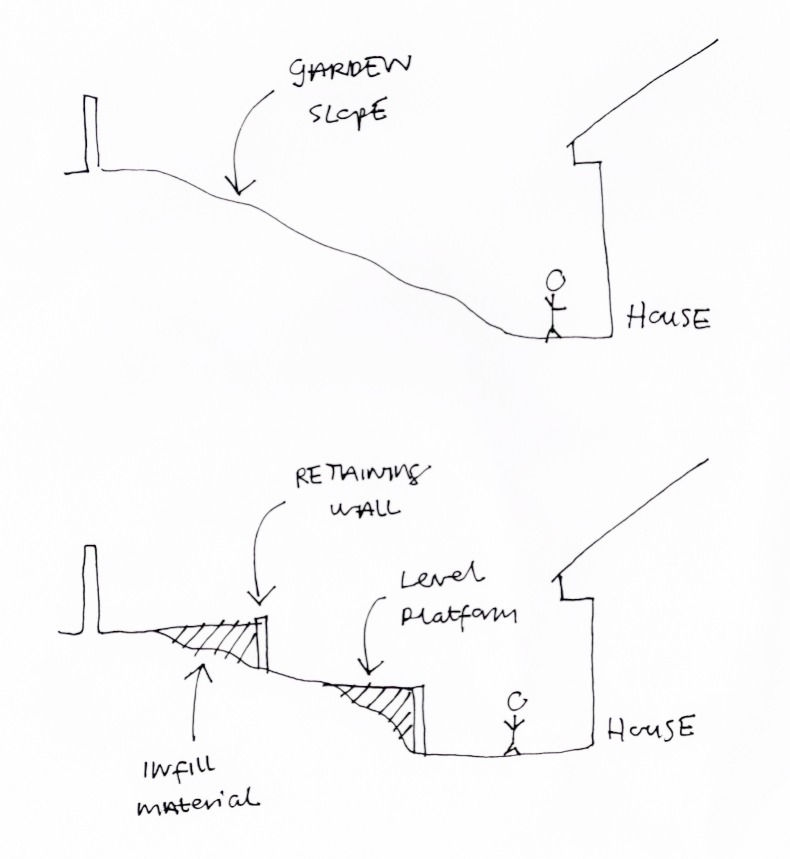 GARDEN
SLOPE
HOUSE
RETAINING
WALL
Level
Platform
HOUSE
Infill
material